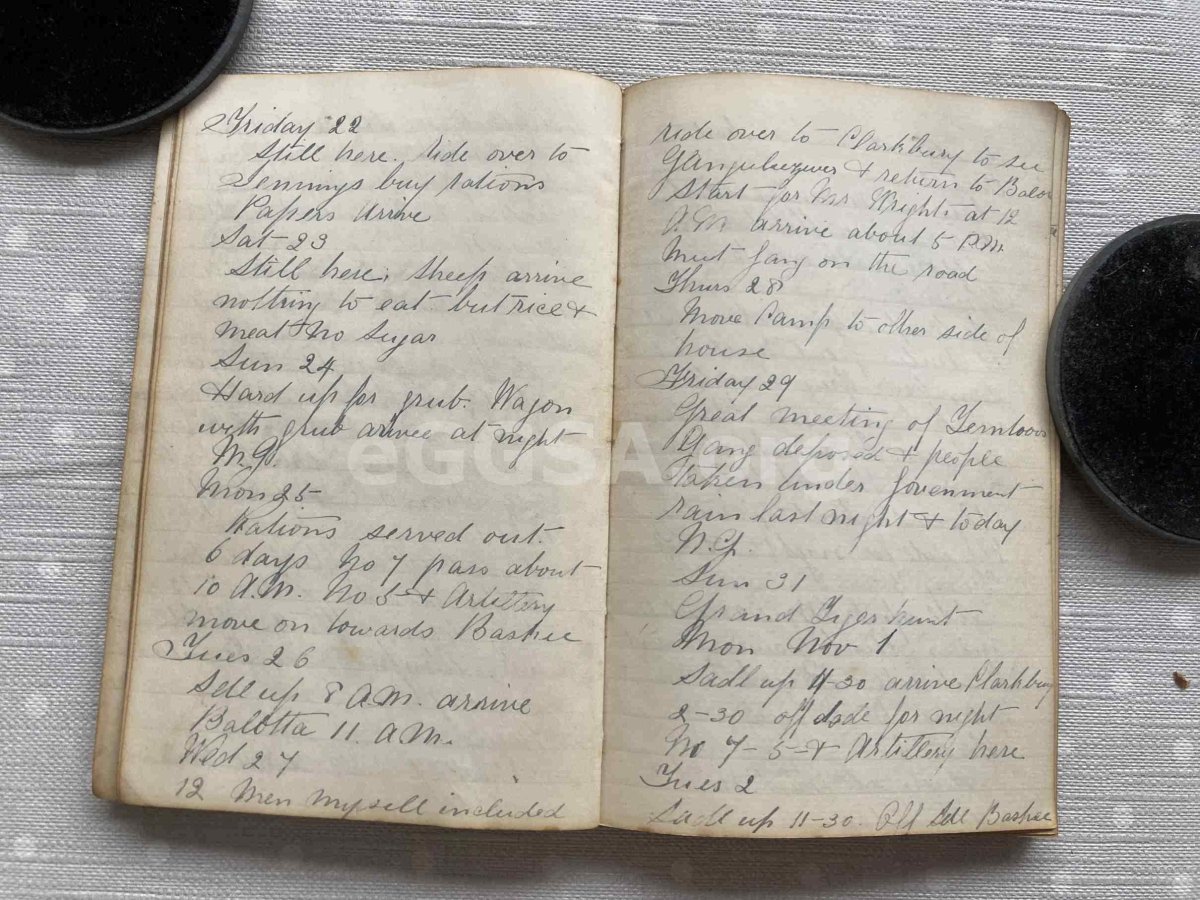 Friday 22
Still here. ride over to
Jennings buy rations
Papers arive
Sat 23
Still here, Sheep arrive
nothing to eat but rice &
meat no Sugar
Sun 24
Hard up for grub. Wagon
with grub arivee at night
N.G.
Mon 25
Rations served out.
6 days No 7 pass about
10 A.M. No 5 & Artillery
move on towards Bashee
Tues 26
Sdl up 8 A.M. arrive
Balotta 11. A.M.
Wed 27
12 Men myself included
ride over to Clarkbury to see
& return to
Start for Mr Wrights at 12
A.M. arrive about 5 P.M.
Meet Gang on the road
Thurs 28
Move Camp to other side of
house
Friday 29
Great meeting of
Gang deposed & people
taken under Govenment
rain last night & today
N.G.
Sun 31
Grand Tiger hunt
Mon Nov 1
Sadl up 11-30 arrive Clarkbury
2-30 off sadle for night
No 7-5 & Artillery here
Tues 2
Sadl up 11-30. Off Sdl Bashee
eGGSA.org